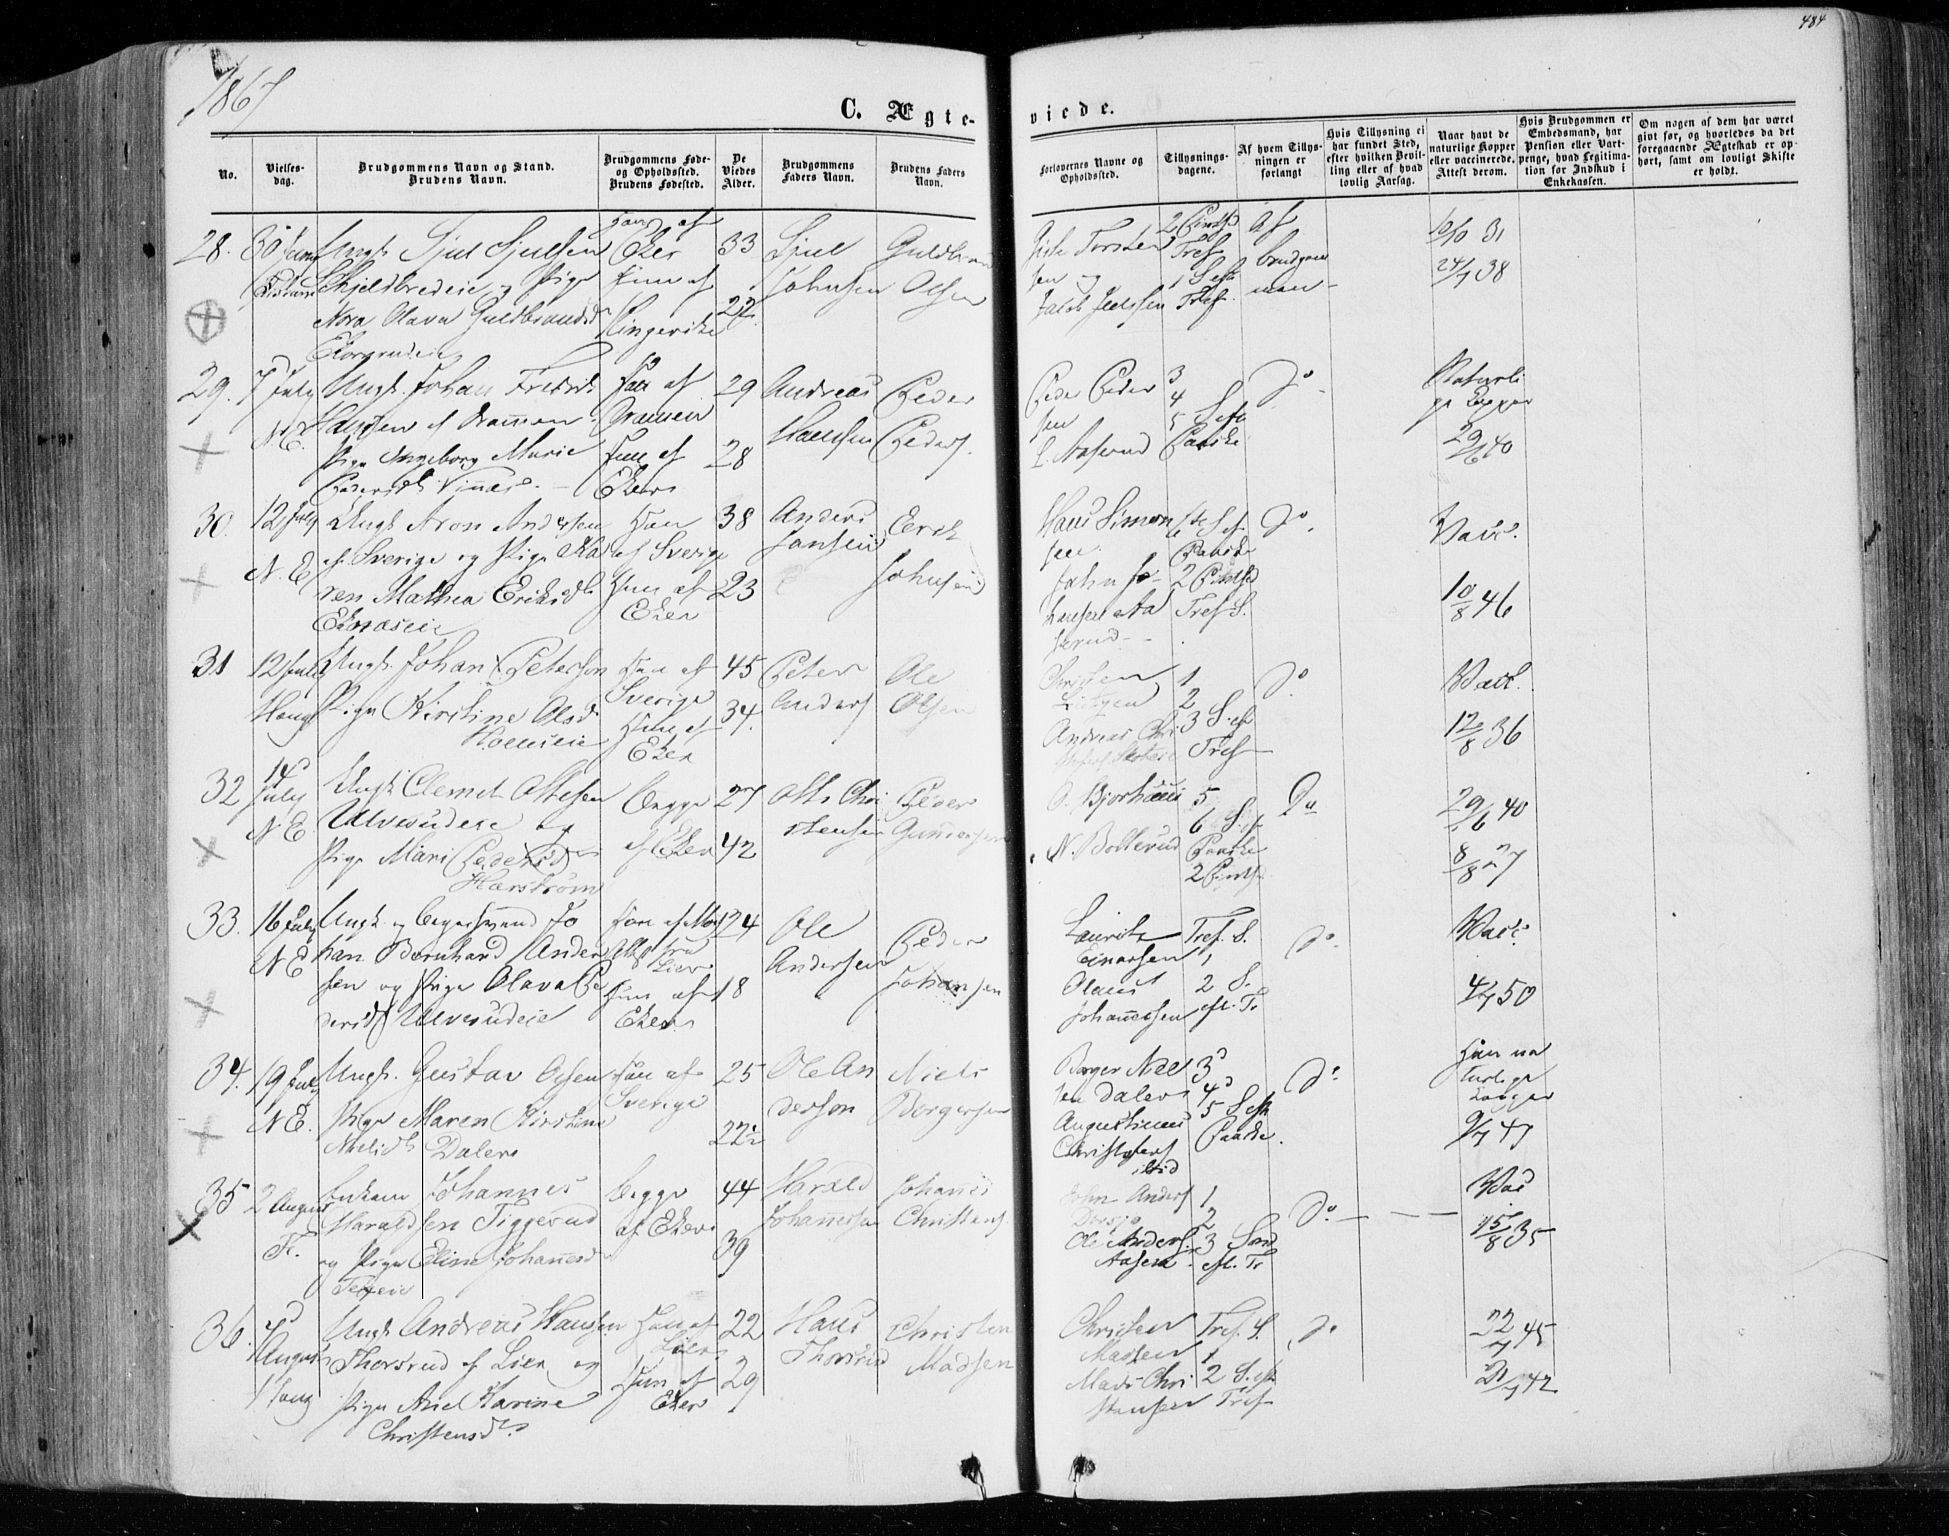 1867
484
C. Ægte-
viede.
No.
Vielses-
dag.
Brudgommens Navn og Stand.
Brudens Navn.
Brudgommens Føde-
og Opholdssted.
Brudens Fødested.
De
Viedes
Alder.
Brudgommens
Faders Navn.
Brudens Faders
Navn.
Forlovernes Navne og
Opholdssted.
Tillysnings-
dagene.
Af hvem Tillys-
ningen er
forlangt
Hvis Tillysning ei
har fundet Sted,
efter hvilken Bevil-
ling eller af hvad
lovlig Aarsag.
Naar havt de
naturlige Kopper
eller vaccinerede.
Attest derom.
Hvis Brudgommen er
Embedsmand, har
Pension eller Vart-
penge, hvad Legitima-
tion for Indskud i
Enkekassen.
Om nogen af dem har været
gift før, og hvorledes da det
foregaaende Ægteskab er op-
hørt, samt om lovligt Skifte
er holdt.
28. 30 Ungk. Sjul Sjulsen
Skjeldbredeie og Pige
Nora Olava Guldbrandsd.
Han af
Eker
Hun af
Ringerike
33
22
Sjul
Johnsen
Guldbran
Olsen
Torsten
sen og
2 Pintsd
Tref
Af
brudgom
men
31
24/7 38
29. 7 July
N.E.
Ungk. Johan Fredrik
Hansen af Dramen.
Pige Ingeborg Marie
Pedersdt.
Han af
Dramen
Hun af
Eker
29
28
Andreas
Hansen
Peder
Peders.
Peder Peder
sen
L. Aaserud
3
4
5 S. eft
Paaske
Do
Naturli
ge Kopper
29/6 40
30. 12 July
N.E.
Ungk. Aron Andersen
af Sverige og Pige Ka
ren Mathea Eriksdt.
Han
af Sverige
Hun af
Eker
38
23
Anders
Jansen
Eerik
Johnsen
Hans Simon
sen.
6te S. eft
Paaske
2 Pintsd
Tref S.
Do
Vacc.
10/8 46
31 12 July
Haug
Ungk. Johan Peterson
Pige Kirstine Olsd.
Han af
Sverige
Hun af
Eker
45
34.
Peter
Anders
Ole
Olsen
Christen
Andreas Chri
1
2
3 S. eft
Tref
Do
Vacc.
12/8 36
32 14
July
N.E.
Ungk. Clemet Ottesen
Ulverudeie og
Pige Mari Pedersd.
Harstrøm
Begge
af Eker
27
42
Otto Chri
stensen
Peder
Gundersen
N. Bollerud
5
6 S. eft
Paaske
2 Pintsd
Do
29/6 40
8/8 27
33. 16 July
N.E
Ungk. og Jo
han Bernhard Ander
sen og Pige Olava Pe
dersdt. Ulverudeie
Hun af
Eker.
24
18
Ole
Andersen
Peder
Johansen
Lauritz
Einarsen
Olaus
Johannessen
Tref. S.
1
2 S.
eft. Tr
Do
Vacc.
4/7 50
34. 19 July
N.E.
Ungk. Gustav Olsen
Pige Maren Kirstine
Nielsdt. Daler
Han af
Sverige
25
22½
Ole An
derson
Niels
Borgersen
Borger Niel
sen Daler
Augustinus
Christophers
ibid
3
4
5 S. eft
Paaske.
Do
Han na
turlige
Kopper
9/7 47
35. 2 August
Fr.
Enkem. Johannes
Haraldsen Tiggerud
og Pige Eline Johannesd
Begge
af Eker
44
39
Harald
Johannessen
Johannes
Christens.
John Anders
Ole Anders.
1
2
3 Sønd
eft. Tr
Do
Vac
15/8 35
36. 4
August
Haug
Ungk. Andreas Hansen
Thorsrud af Lier og
Pige Anel Karine
Christensd.
Han af
Lier
Hun af
Eker
22
29
Hans
Thorsrud
Christen
Madsen
Christen
Madsen
Mads Chri
stensen
Tref. S.
1
2 S. eft
Tref
Do
22/7 45
21/7 42